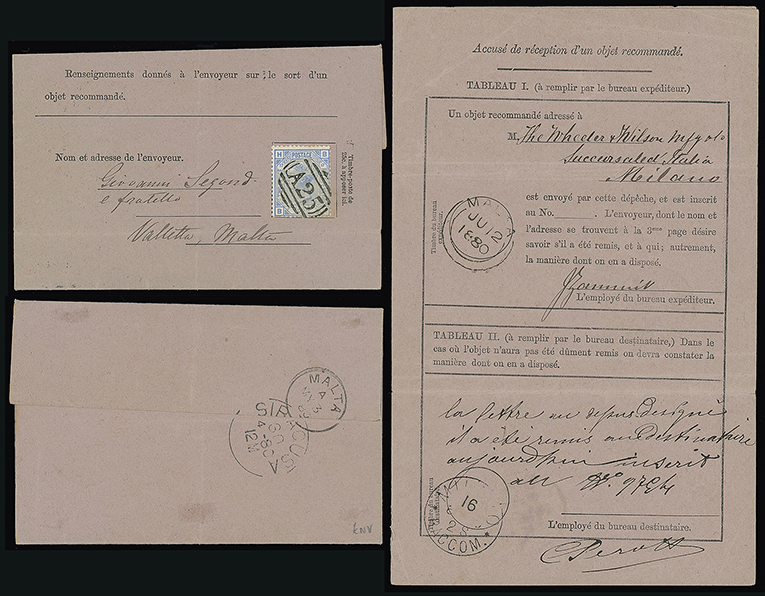 Renseignements donnés à l'envoyeur sur le sort d'un
objet recommandé.
Nom et adresse de l'envoyeur.
Giovanni Segond
e fratello
Valletta, Malta
Timbre-poste de
25c. à apposer ici.
H B
POSTAGE
A25
B H
MALTA
A
SIRACUSA
4-80
12M
Accusé de réception d'un objet recommandé.
TABLEAU I. (à remplir par le bureau expéditeur.)
Un objet recommandé adressé à
M. The Wheeler & Wilson Mfg
Succursale d'Italia
Milano
est envoyé par cette dépêche, et est inscrit
au No. . L'envoyeur, dont le nom et
l'adresse se trouvent à la 3me page désire
savoir s'il a été remis, et à qui; autrement,
la manière dont on en a disposé.
Timbre du bureau
expéditeur.
MALTA
JU 12
1880
Zammit
L'employé du bureau expéditeur.
TABLEAU II. (à remplir par le bureau destinataire,) Dans le
cas où l'objet n'aura pas été dûment remis on devra constater la
manière dont on en a disposé.
la lettre au dessus designé
il a été remis au destinataire
aujourd'hui inscrit
au No.
Timbre du bureau
destinataire.
16
RACCOM.
L'employé du bureau destinataire.